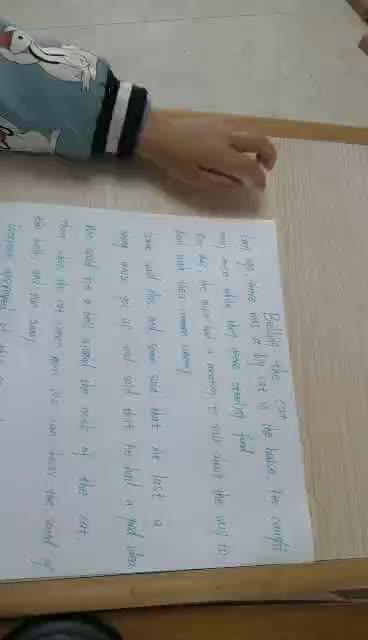 Belling the cat
Long ago, there was a big cat in the house. He caught
many mice while they were stealing food.
One day, the mice had a meeting to talk about the way to
deal with their common enemy.
Some said this, and some said that. At last a
young mouse got up and said that he had a good idea.
We could tie a bell around the neck of the cat.
Then when the cat comes near, we can hear the sound of
the bell, and run away.
Everyone approved of this